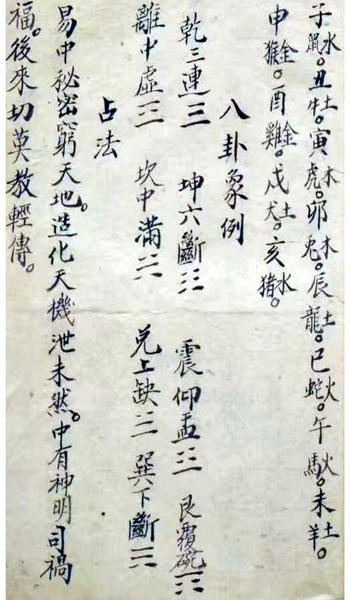 子鼠水。丑牛土。寅虎木。卯兔木。辰龍土。巳蛇火。午馬火。未羊土。
申猴金。酉雞金。戌犬土。亥猪水。
八卦象例
乾三連☰ 坤六斷☷ 震仰盂☳ 艮覆碗☶
離中虛☲ 坎中滿☵ 兌上缺☱ 巽下斷☴
占法
易中秘密窮天地。造化天機泄未然。中有神明司禍
福。後來切莫教輕傳。